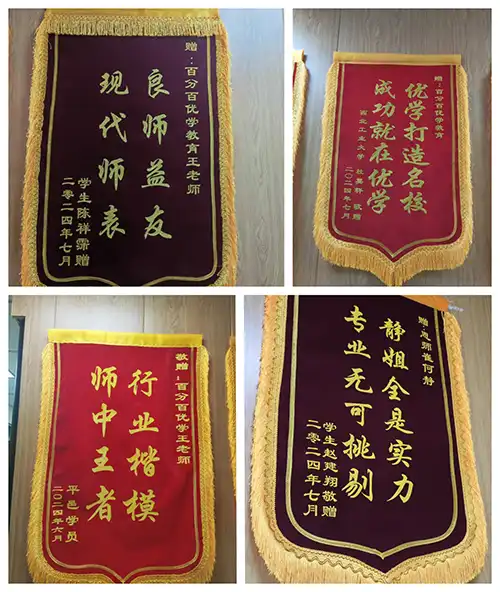 赠:百分百优学教育王老师
良师益友
现代师表
学生陈祥霈赠
二零二四年七月
赠:百分百优学教育
优学打造名校
成功就在优学
西北工业大学 敬赠
二〇二四年七月
敬赠:百分百优学王老师
行业楷模
师中王者
平邑学员
二〇二四年六月
赠:恩师崔何静
静姐全是实力
专业无可挑剔
学生赵建翔敬赠
二零二四年七月